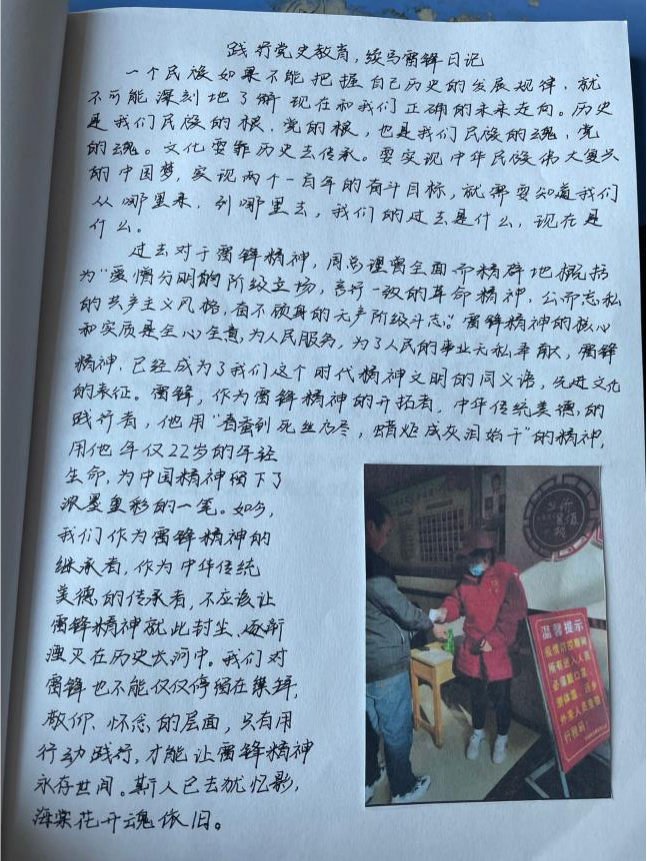 践行党史教育，续写雷锋日记
一个民族如果不能把握自己历史的发展规律，就
不可能深刻地了解现在和我们正确的未来走向。历史
是我们民族的根，党的根，也是我们民族的魂，党
的魂。文化要靠历史去传承。要实现中华民族伟大复兴
的中国梦，实现两个一百年的奋斗目标，就需要知道我们
从哪里来，到哪里去，我们的过去是什么，现在是
什么。
过去对于雷锋精神，周总理曾全面而精辟地概括
为“爱憎分明的阶级立场，言行一致的革命精神，公而忘私
的共产主义风格，奋不顾身的无产阶级斗志”。雷锋精神的核心
和实质是全心全意为人民服务，为了人民的事业无私奉献，雷锋
精神，已经成为了我们这个时代精神文明的同义语，先进文化
的表征。雷锋，作为雷锋精神的开拓者，中华传统美德的
践行者，他用“春蚕到死丝乃尽，蜡炬成灰泪始干”的精神，
用他年仅22岁的年轻
生命，为中国精神留下了
浓墨重彩的一笔。如今，
我们作为雷锋精神的
继承者，作为中华传统
美德的传承者，不应该让
雷锋精神就此封尘、逐渐
湮灭在历史长河中。我们对
雷锋也不能仅仅停留在崇拜，
敬仰、怀念的层面，只有用
行动践行，才能让雷锋精神
永存世间。斯人已去犹忆影，
海棠花开魂依旧。
温馨提示
疫情防控期间
所有进入人员
必须戴口罩
测体温
外来人员
行程码